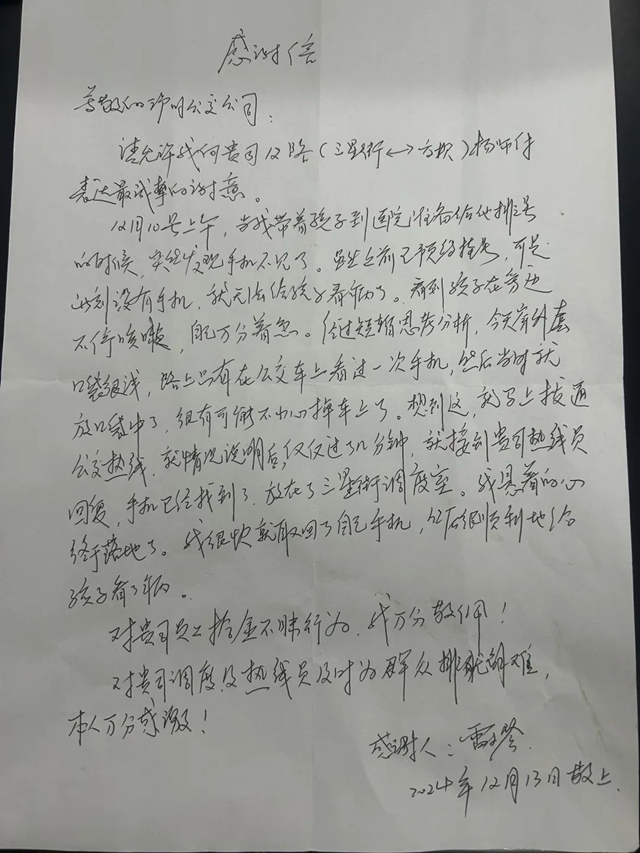 感谢信
尊敬的珍明公交公司:
请允许我向贵司12路(三星街↔方坎)杨师付
表达最诚挚的谢意。
12月10号上午,当我带着孩子到医院准备给他排号
的时候,突然发现手机不见了。虽然之前已预约挂号,可是
此刻没有手机,我无法给孩子看病了。看到孩子在旁边
不停咳嗽,自己万分着急。经过短暂思考分析,今天穿外套
口袋很浅,路上只有在公交车上看过一次手机,然后当时就
放口袋中了,很有可能不小心掉车上了。想到这,我马上拨通
公交热线,就情况说明后,仅仅过了几分钟,就接到贵司热线员
回复,手机已经找到了,放在了三星街调度室。我悬着的心
终于落地了。我很快就取回了自己手机,之后很顺利地给
孩子看了病。
对贵司员工拾金不昧行为,我万分敬佩!
对贵司调度及热线员及时为群众排忧解难,
本人万分感激!
感谢人:雷
2024年12月13日敬上